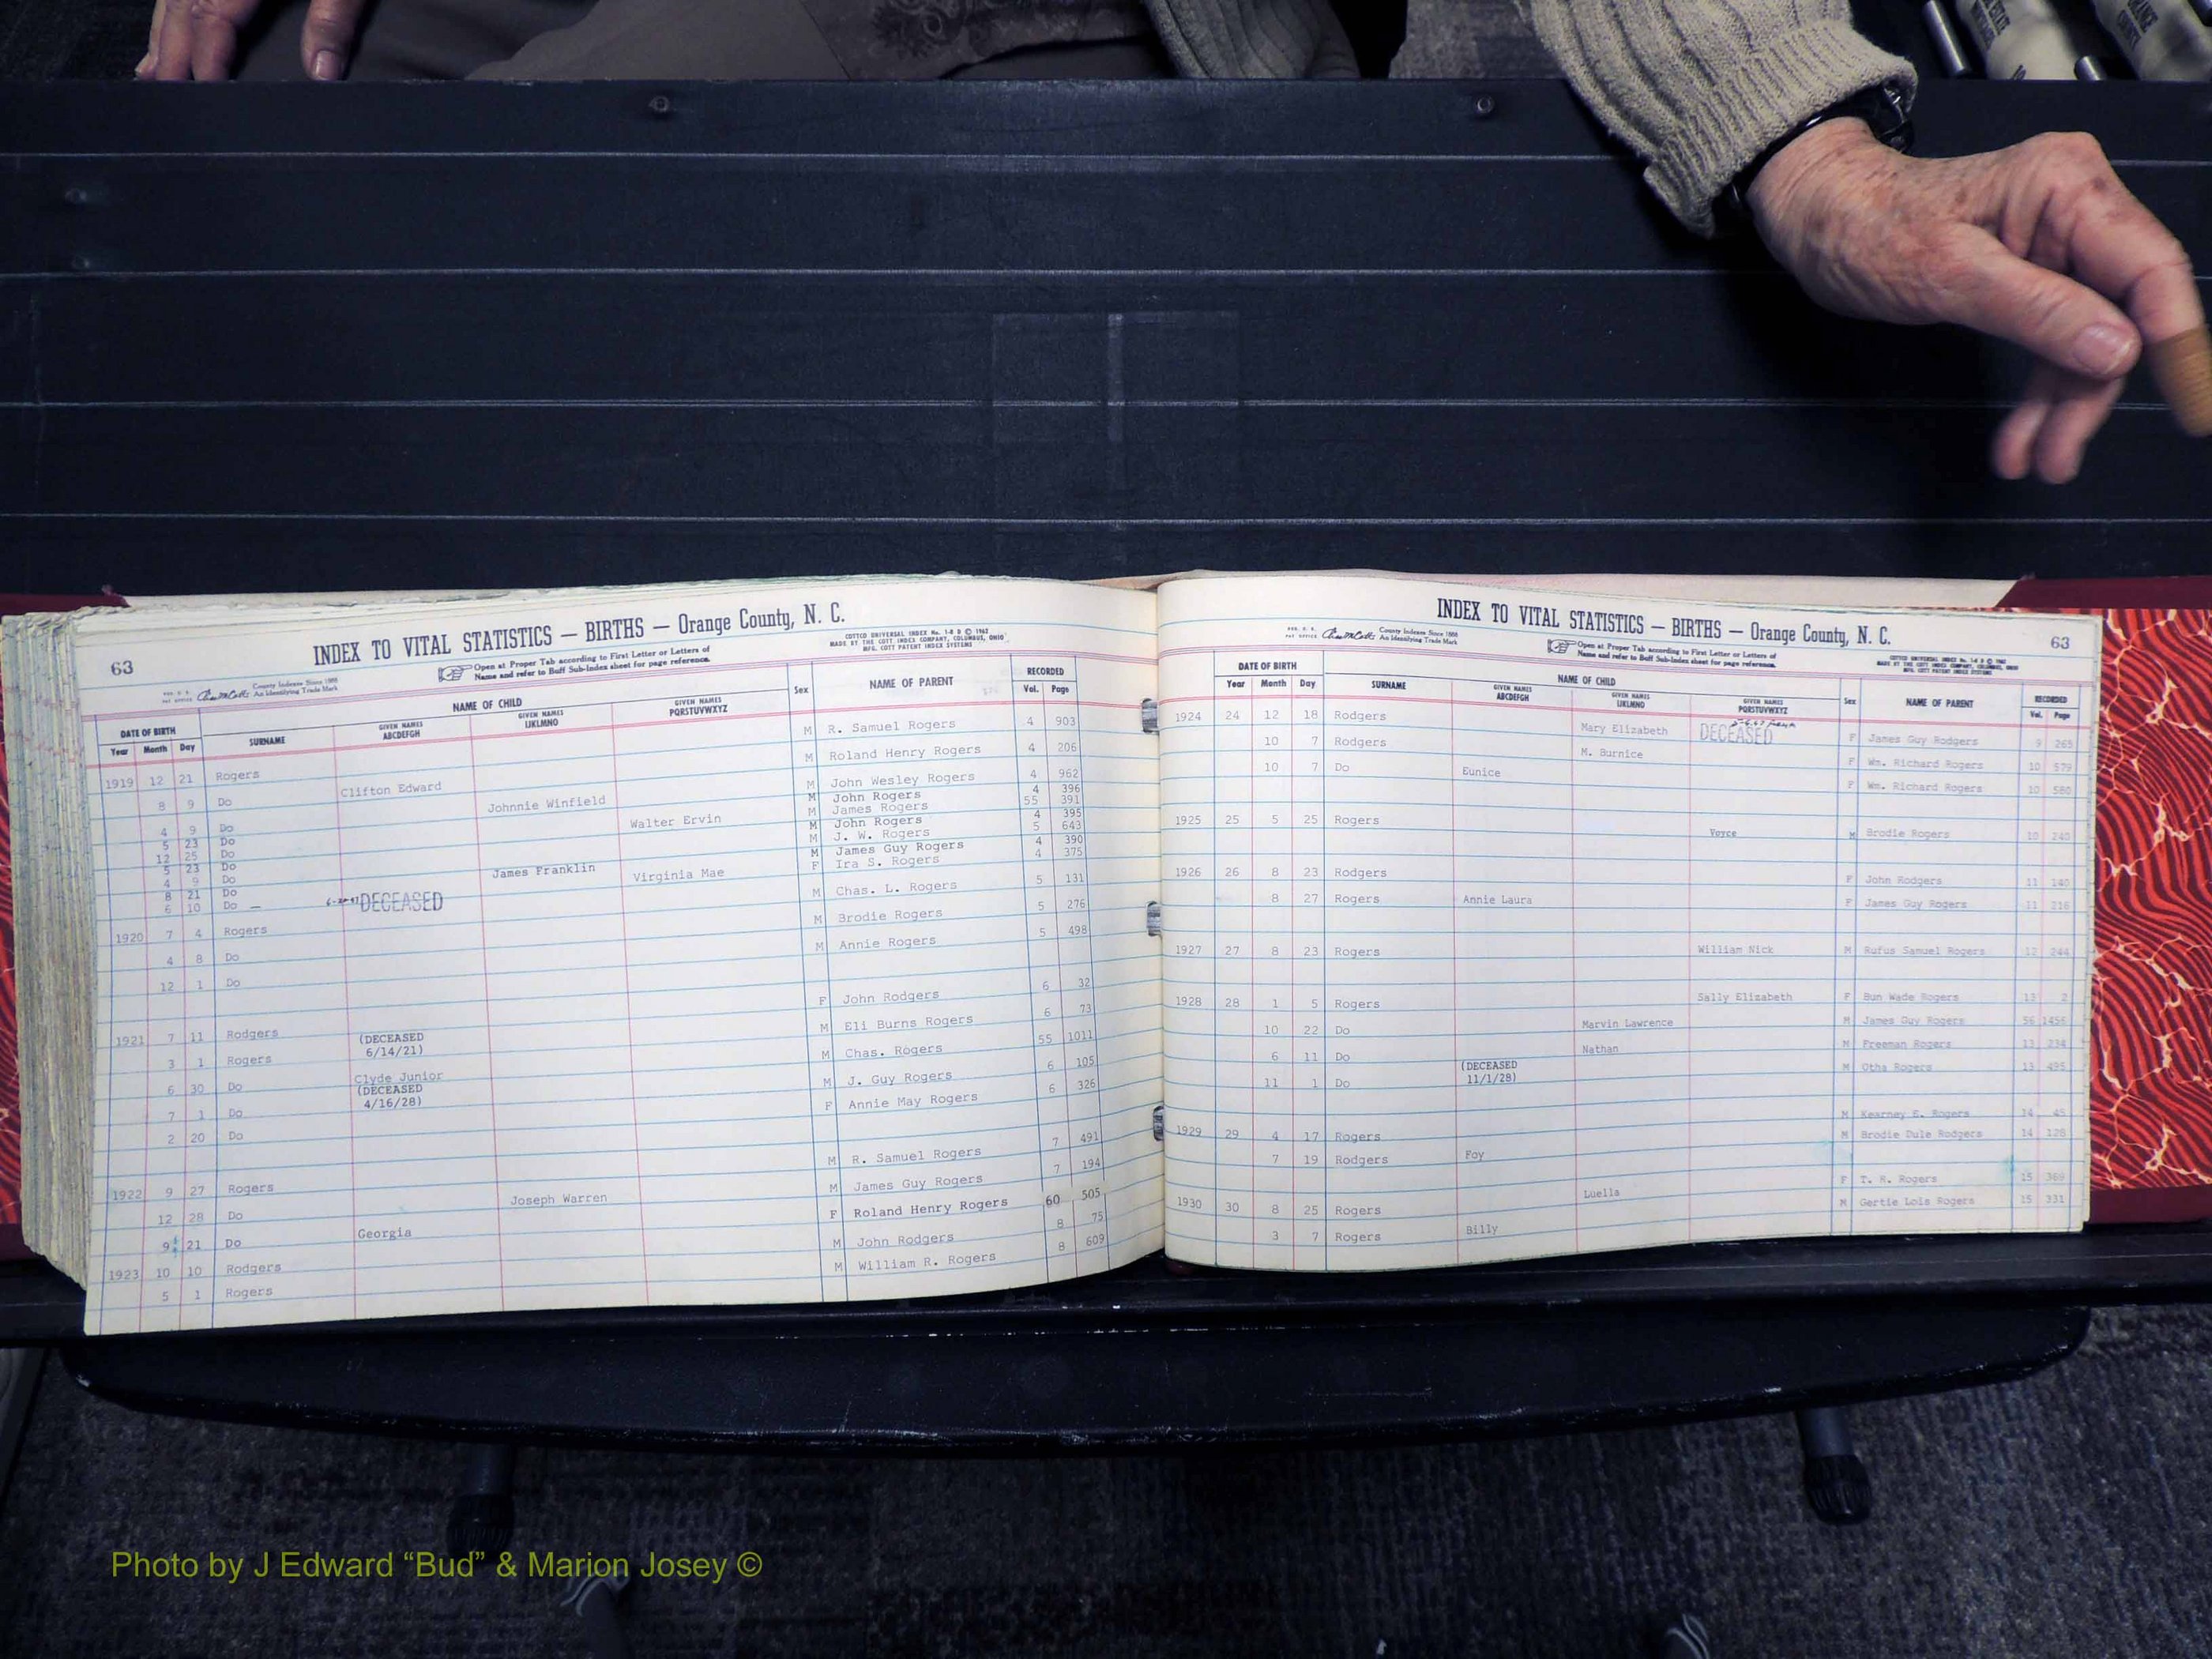 INDEX TO VITAL STATISTICS — BIRTHS — Orange County, N. C.
63
County Indexes Since 1888
An Identifying Trade Mark
Open at Proper Tab according to First Letter or Letters of
Name and refer to Buff Sub-Index sheet for page reference.
COTTCO UNIVERSAL INDEX No. 1-8 D © 1962
MADE BY THE COTT INDEX COMPANY, COLUMBUS, OHIO
MFG. COTT PATENT INDEX SYSTEMS
DATE OF BIRTH NAME OF CHILD Sex NAME OF PARENT RECORDED
Year Month Day SURNAME GIVEN NAMES ABCDEFGH GIVEN NAMES IJKLMNO GIVEN NAMES PQRSTUVWXYZ Vol. Page
1919 12 21 Rogers M R. Samuel Rogers 4 903
8 9 Do Clifton Edward M Roland Henry Rogers 4 206
4 9 Do Johnnie Winfield M John Wesley Rogers 4 962
5 23 Do Walter Ervin M John Rogers 4 396
12 25 Do M James Rogers 55 391
5 23 Do M John Rogers 4 395
4 9 Do James Franklin M J. W. Rogers 5 643
8 21 Do Virginia Mae M James Guy Rogers 4 390
6 10 Do — DECEASED F Ira S. Rogers 4 375
1920 7 4 Rogers M Chas. L. Rogers 5 131
4 8 Do M Brodie Rogers 5 276
12 1 Do M Annie Rogers 5 498
1921 7 11 Rodgers F John Rodgers 6 32
3 1 Rogers (DECEASED 6/14/21) M Eli Burns Rogers 6 73
6 30 Do Clyde Junior M Chas. Rogers 55 1011
7 1 Do (DECEASED 4/16/28) M J. Guy Rogers 6 105
2 20 Do F Annie May Rogers 6 326
1922 9 27 Rogers M R. Samuel Rogers 7 491
12 28 Do Joseph Warren M James Guy Rogers 7 194
9 21 Do Georgia F Roland Henry Rogers 60 505
1923 10 10 Rodgers M John Rodgers 8 75
5 1 Rogers M William R. Rogers 8 609
INDEX TO VITAL STATISTICS — BIRTHS — Orange County, N. C.
63
County Indexes Since 1888
An Identifying Trade Mark
Open at Proper Tab according to First Letter or Letters of
Name and refer to Buff Sub-Index sheet for page reference.
DATE OF BIRTH NAME OF CHILD Sex NAME OF PARENT RECORDED
Year Month Day SURNAME GIVEN NAMES ABCDEFGH GIVEN NAMES IJKLMNO GIVEN NAMES PQRSTUVWXYZ Vol. Page
1924 24 12 18 Rodgers Mary Elizabeth DECEASED F James Guy Rodgers 9 265
10 7 Rodgers M. Burnice F Wm. Richard Rogers 10 579
10 7 Do Eunice F Wm. Richard Rogers 10 580
1925 25 5 25 Rogers Voyce M Brodie Rogers 10 240
1926 26 8 23 Rodgers F John Rodgers 11 140
8 27 Rogers Annie Laura F James Guy Rogers 11 216
1927 27 8 23 Rogers William Nick M Rufus Samuel Rogers 12 244
1928 28 1 5 Rogers Sally Elizabeth F Bun Wade Rogers 13 2
10 22 Do Marvin Lawrence M James Guy Rogers 56 1456
6 11 Do Nathan M Freeman Rogers 13 234
11 1 Do (DECEASED 11/1/28) M Otha Rogers 13 495
1929 29 4 17 Rogers M Kearney E. Rogers 14 45
7 19 Rodgers Foy M Brodie Dule Rodgers 14 128
1930 30 8 25 Rogers Luella F T. N. Rogers 15 369
3 7 Rogers Billy M Gertie Lois Rogers 15 331
Photo by J Edward “Bud” & Marion Josey ©